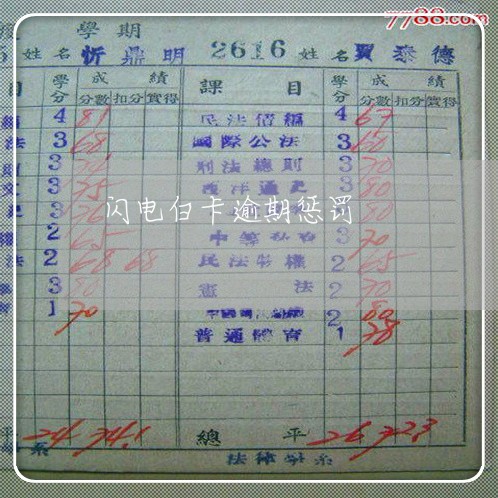 7788.com
學期
姓名 忻鼎明 2616 姓名 賈泰德
目 學分 成績 課目 學分 成績
分數 扣分 實得 分數 扣分 實得
4 81 民法債編 4 67
法 3 68 國際公法 3 60
3 刑法總則 3 70
文 3 75 西洋通史 3 80
3 3 80
權 2 65 3 70
法 2 68 68 民法物權 2 65
3 80 憲法 2 70
1 70 2 80
普通體育 1 78
閃电白卡逾期惩罚
平 24 74.1 總平 26 72.3
系 法律學系